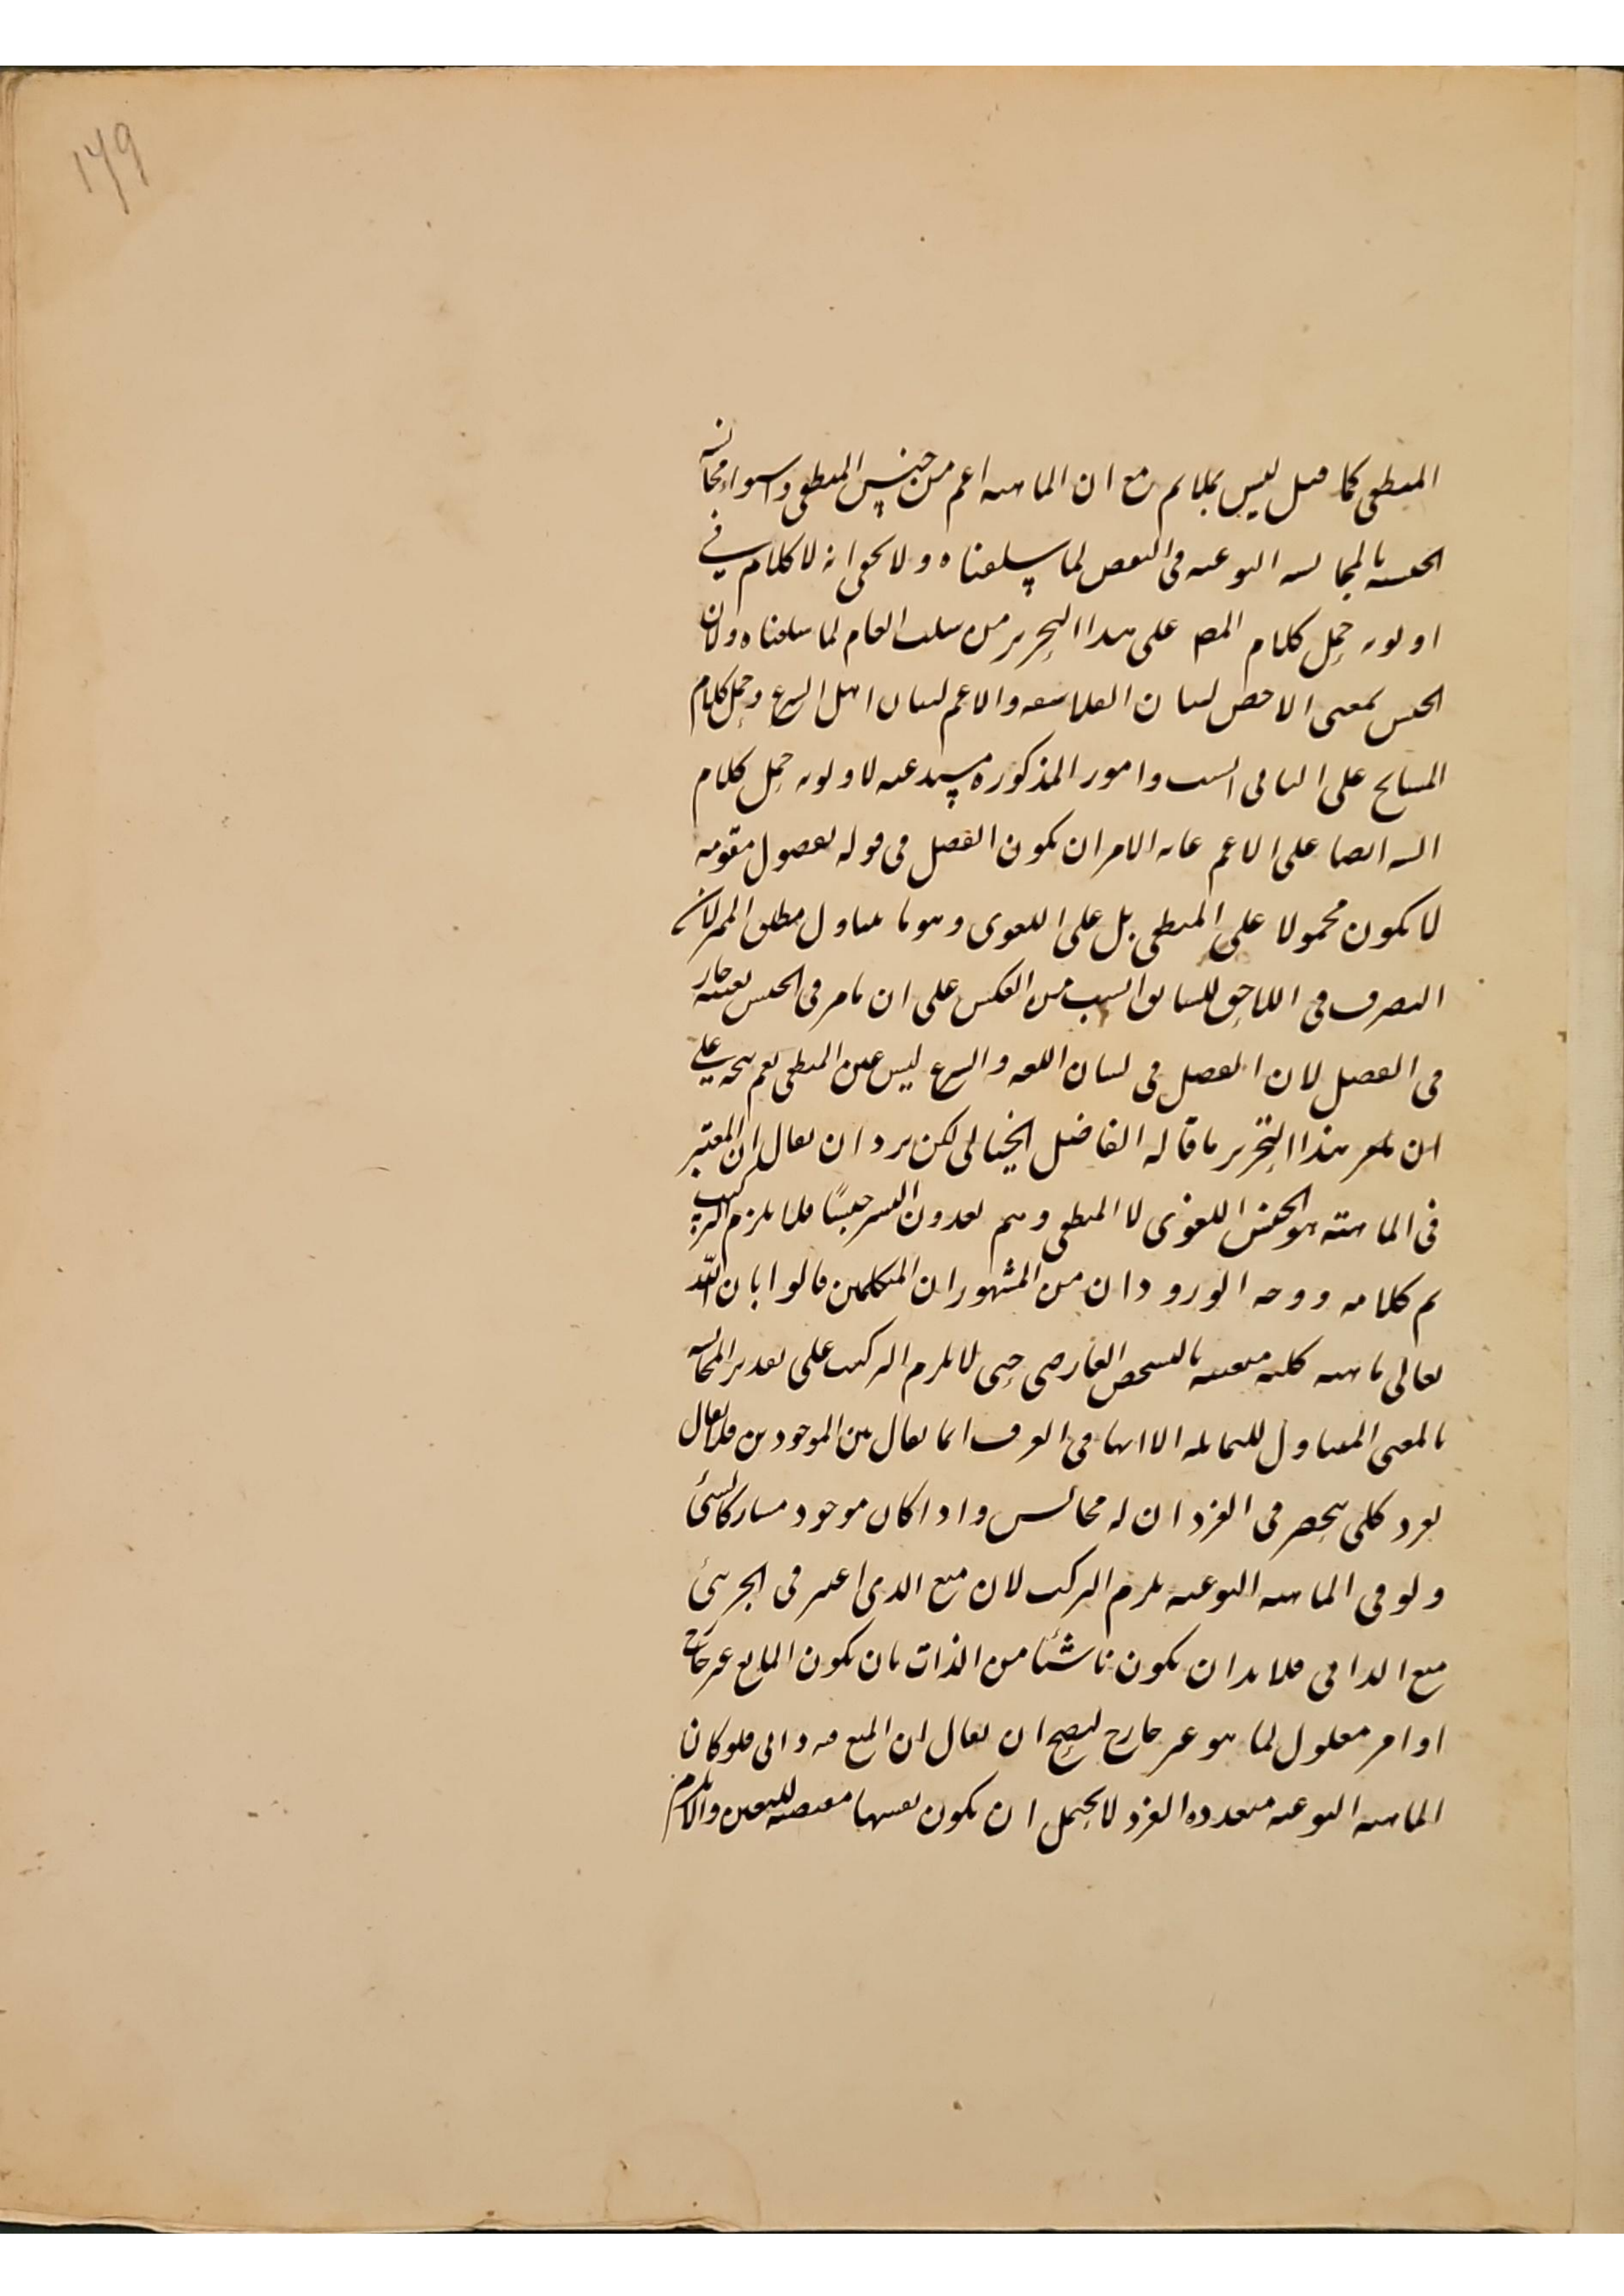 ١٦٩
المنطقى كما قيل ليس بملايم مع ان الماهية اعم من جنس المنطقى واسواء مجانسة
الجنسية بالمجانسة النوعية فى النقص لما سلفناه ولا يخفى انه لا كلام في
اولوية حمل كلام المص على هذا التحرير من سلب العام لما سلفناه ولان
الجنس بمعنى الاخص لسان الفلاسفه والاعم لسان اهل الشرع وحمل كلام
المشايخ على الثانى انسب وامور المذكوره مستدعيه لاولويه حمل كلام
اليه ايضا على الاعم غايه الامر ان يكون الفصل فى قوله بفصول مقومه
لا يكون محمولا على المنطقى بل على اللغوى وهو ما يتناول مطلق المميز لان
التصرف فى اللاحق للسابق انسب من العكس على ان ما مر فى الجنس بعينه جار
فى الفصل لان الفصل فى لسان اللغه والشرع ليس عين المنطقى نعم يتجه على
ان هذا التحرير ما قاله الفاضل الخيالى لكن يرد ان يقال ان المعتبر
فى الماهيته هو الجنس اللغوى لا المنطقى وهم يعدون البشر جنسًا فلا يلزم التركيب
تم كلامه ووجه الورود ان من المشهور ان المتكلمين قالوا بان لله
تعالى ماهيه كليه متعينه بالتشخص العارضى حتى لا يلزم التركيب على تقدير المجانسه
بالمعنى المتناول للمماثله الا انها فى العرف انما يقال بين الموجودين فلا يقال
لفرد كلى ينحصر فى الفرد ان له مجانس واذا كان موجود مشاركا لشئ
ولو فى الماهيه النوعيه يلزم التركب لان منع الذى اعتبر فى الجزئى
منع الذاتى فلا بد ان يكون ناشئا من الذات بان يكون المانع غير خارج
او امر معلول لما هو غير خارج ليصح ان يقال ان المنع فيه ذاتى فلو كان
الماهيه النوعيه متعدده الفرد لا يحتمل ان يكون نفسها مقتضيه للتعين والا لم